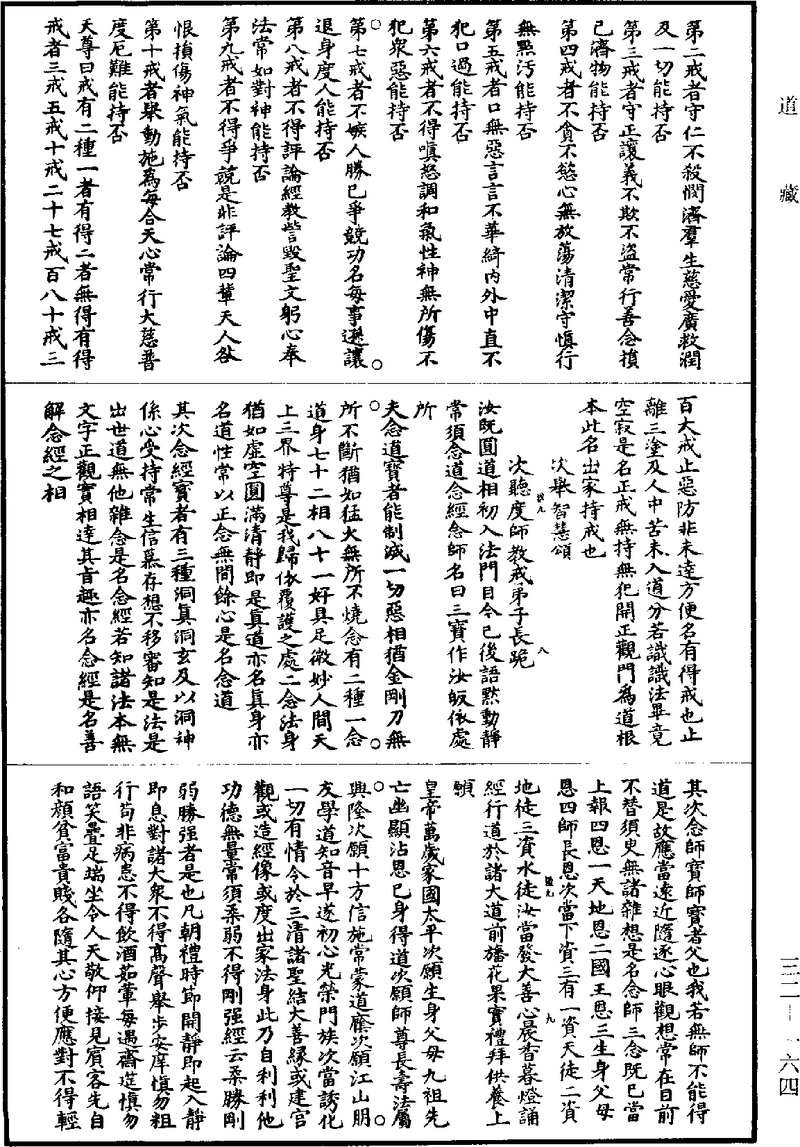 道藏
三二－一六四
第二戒者守仁不殺憫濟羣生慈愛廣救潤
及一切能持否
第三戒者守正讓義不欺不盜常行善念損
己濟物能持否
第四戒者不貪不慾心無放蕩清潔守慎行
無點污能持否
第五戒者口無惡言言不華綺內外中直不
犯口過能持否
第六戒者不得嗔怒調和氣性神無所傷不
犯衆惡能持否
第七戒者不嫉人勝己爭競功名每事遜讓
退身度人能持否
第八戒者不得評論經教訾毀聖文躬心奉
法常如對神能持否
第九戒者不得爭說是非評論四輩天人咎
恨損傷神氣能持否
第十戒者舉動施為每合天心常行大慈普
度厄難能持否
天尊曰戒有二種一者有得二者無得有得
戒者三戒五戒十戒二十七戒百八十戒三
百大戒止惡防非未達方便名有得戒也止
離三塗及人中苦未入道分若識識法畢竟
空寂是名正戒無持無犯開正觀門為道根
本此名出家持戒也
次舉智慧頌
次聽度師教戒弟子長跪
汝既圓道相初入法門目今已後語默動靜
常須念道念經念師名曰三寶作汝皈依處
所
夫念道寶者能制滅一切惡相猶金剛刀無
所不斷猶如猛火無所不燒念有二種一念
道身七十二相八十一好具足微妙人間天
上三界特尊是我歸依覆護之處二念法身
猶如虛空圓滿清靜即是真道亦名真身亦
名道性常以正念無間餘心是名念道
其次念經寶者有三種洞真洞玄及以洞神
係心受持常生信慕存想不移審知是法是
出世道無他雜念是名念經若知諸法本無
文字正觀實相達其旨趣亦名念經是名善
解念經之相
其次念師寶師寶者父也我若無師不能得
道是故應當遠近隨逐心眼觀想常在目前
不替須臾無諸雜想是名念師三念既已當
上報四恩一天地恩二國王恩三生身父母
恩四師長恩次當下資三有一資天徒二資
地徒三資水徒汝當發大善心晨香暮燈誦
經行道於諸大道前旛花果實禮拜供養上
願
皇帝萬歲家國太平次願生身父母九祖先
亡幽顯沾恩已身得道次願師尊長壽法屬
興隆次願十方信施常蒙道廕次願江山朋
友學道知音早遂初心光榮門族次當誘化
一切有情令於三清諸聖結大善緣或建宮
觀或造經像或度出家法身此乃自利利他
功德無量常須柔弱不得剛强經云柔勝剛
弱勝强者是也凡朝禮時節開靜即起入靜
即息對諸大衆不得高聲舉步安庠慎勿粗
行苟非病患不得飲酒茹葷每遇齋筵慎勿
語笑疊足端坐令人天敬仰接見賓客先自
和顏貧富貴賤各隨其心方便應對不得輕